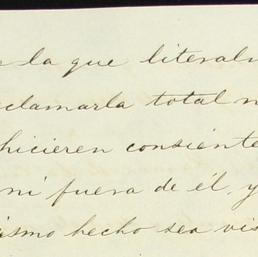 la que literal
clamarla total
hicieren consiente
ni fuera de él, y
ismo hecho sea vis